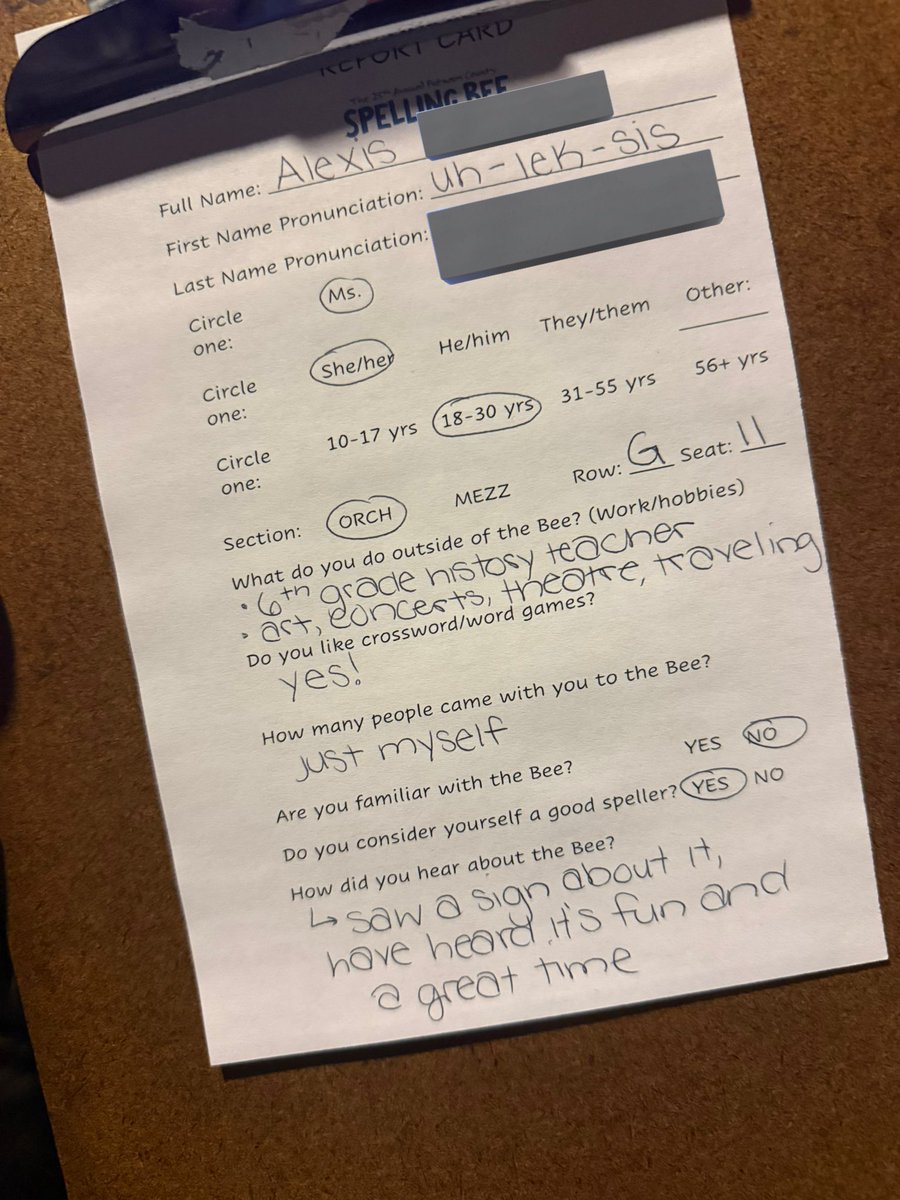 REPORT CARD
The 25th Annual Putnam County
SPELLING BEE
Full Name: Alexis
First Name Pronunciation: uh-lek-sis
Last Name Pronunciation:
Circle one: Ms.
Circle one: She/her He/him They/them Other:
Circle one: 10-17 yrs 18-30 yrs 31-55 yrs 56+ yrs
Section: ORCH MEZZ Row: G Seat: 11
What do you do outside of the Bee? (Work/hobbies)
• 6th grade history teacher
• art, concerts, theatre, traveling
Do you like crossword/word games?
yes!
How many people came with you to the Bee?
just myself
Are you familiar with the Bee? YES NO
Do you consider yourself a good speller? YES NO
How did you hear about the Bee?
↳ saw a sign about it,
have heard it's fun and
a great time